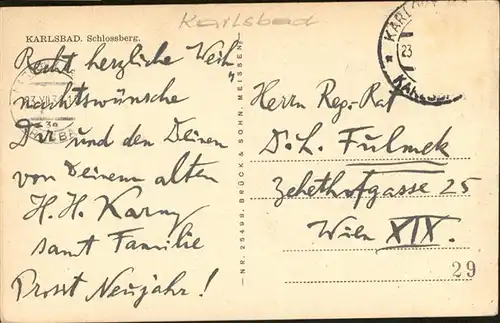 Karlsbad
KARLSBAD. Schlossberg.
Recht herzliche Weih
nachtswünsche
Dir und den Deinen
von Deinem alten
H. H. Karny
samt Familie
Prosit Neujahr!
NR. 25498. BRÜCK & SOHN, MEISSEN.
23
Herrn Reg. Rat
D. L. Fulmek
Zehethofgasse 25
Wien XIX.
29